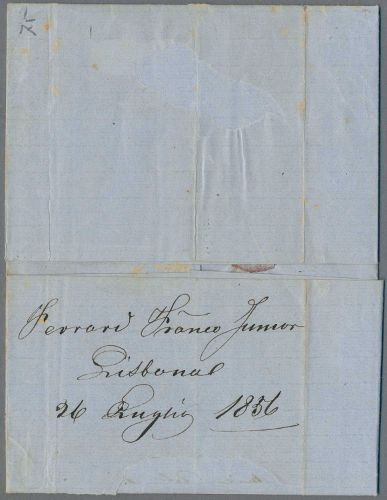 75
Ferrari Franco Junior
Lisbona
26 Luglio 1856